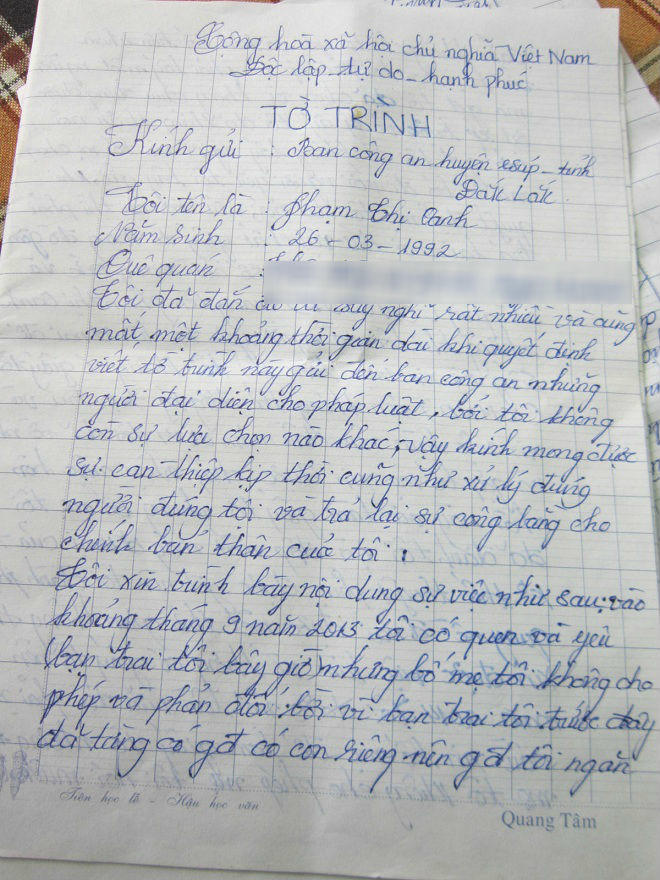 Cộng hoà xã hôi chủ nghĩa Việt Nam
Độc lập - tự do - hạnh phúc
TỜ TRÌNH
Kính gửi : Ban công an huyện easúp - tỉnh
Đăk Lăk.
Tôi tên là : Phạm Thị Oanh
Năm sinh : 26 - 03 - 1992
Quê quán :
Tôi đã đắn đo suy nghĩ rất nhiều và cũng
mất một khoảng thời gian dài khi quyết định
viết tờ trình này gửi đến ban công an những
người đại diên cho pháp luật, bởi tôi không
còn sự lựa chọn nào khác, vậy kính mong được
sự can thiệp kịp thời cũng như xử lý đúng
người đúng tội và trả lại sự công bằng cho
chính bản thân của tôi.
Tôi xin trình bày nội dung sự việc như sau: vào
khoảng tháng 9 năm 2013 tôi có quen và yêu
(bạn trai tôi bây giờ) nhưng bố mẹ tôi không cho
phép và phản đối. bởi vì bạn trai tôi trước đây
đã từng có gđ có con riêng nên gđ tôi ngăn
Tiên học lễ - Hậu học văn
Quang Tâm